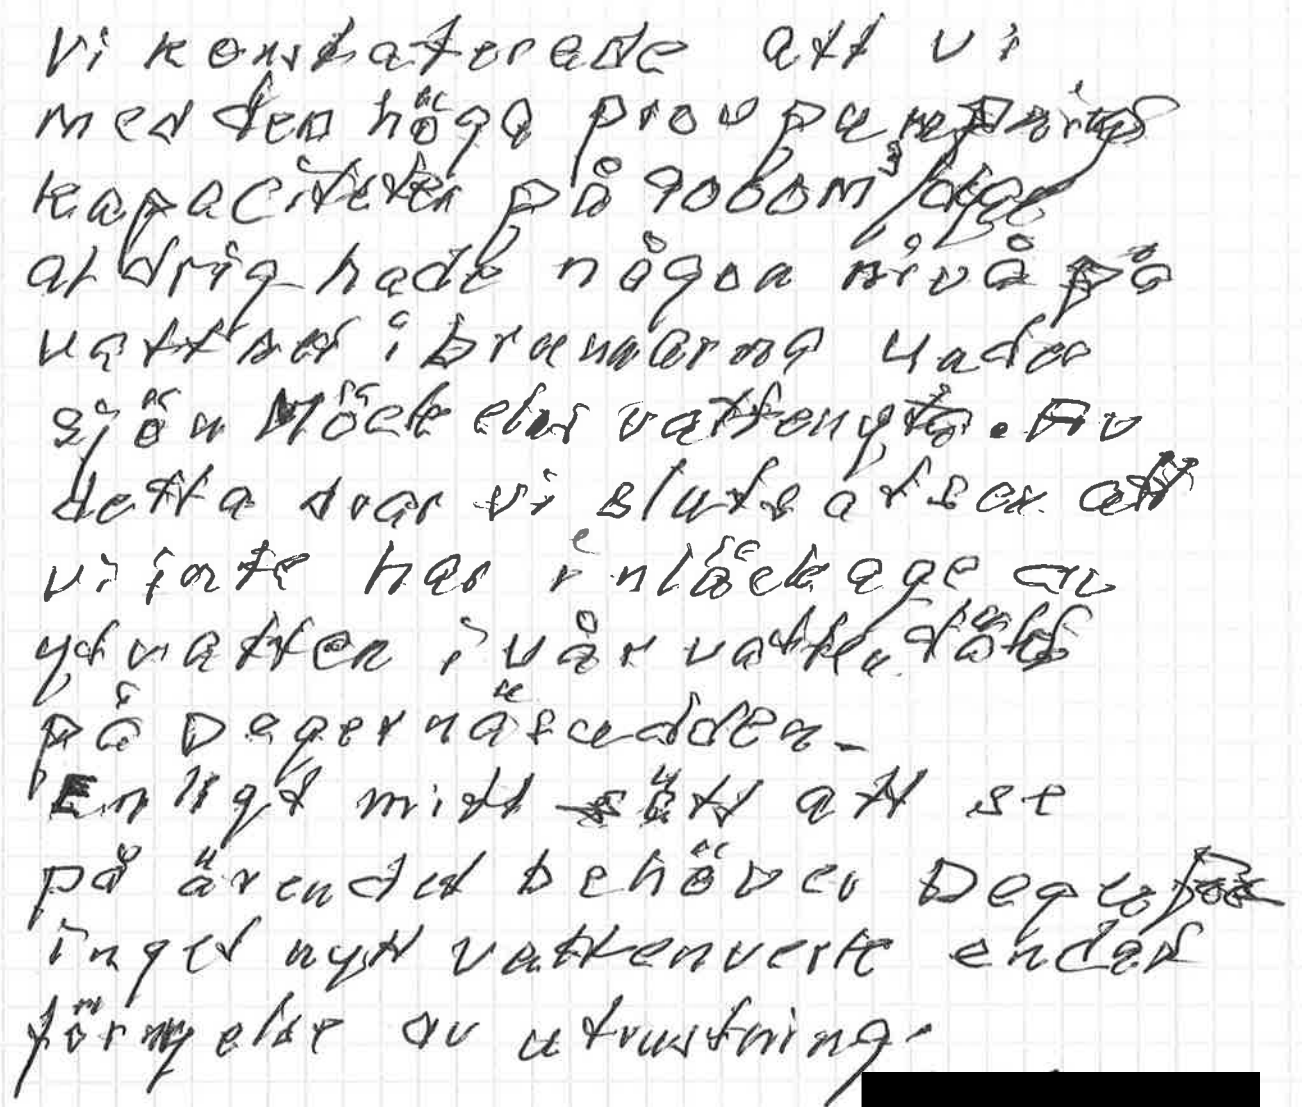 Vi konstaterade att vi
med den höga provpumpnings
kapaciteten på 9000m³/dag
aldrig hade någon nivå på
vattnet i brunnarna under
sjön Möckelns vattenyta. Av
detta drar vi slutsatsen att
vi inte har inläckage av
ytvatten i vår vattentäkt
på Degernäsudden.
Enligt mitt sätt att se
på ärendet behöver Degerfors
inget nytt vattenverk endast
förnyelse av utrustning.